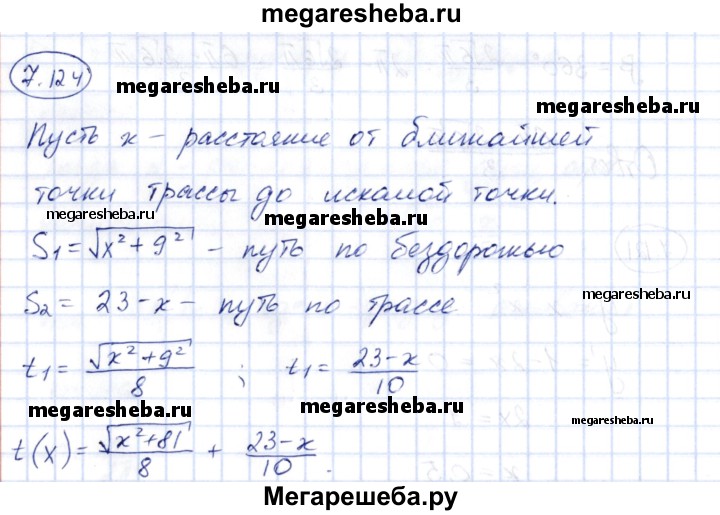 megaresheba.ru
7.124
megaresheba.ru
megaresheba.ru
Пусть x – расстояние от ближайшей
точки трассы до искомой точки.
megaresheba.ru
megaresheba.ru
S₁ = √(x² + 9²) – путь по бездорожью
megaresheba.ru
S₂ = 23 – x – путь по трассе
t₁ = √(x² + 9²)/8 ; t₁ = (23 – x)/10
megaresheba.ru
megaresheba.ru
megaresheba.ru
t(x) = √(x² + 81)/8 + (23 – x)/10.
Мегарешеба.ру